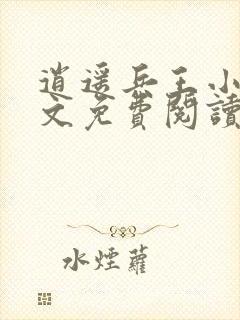 逍遥兵王小
文免費閱讀
水煙蘿